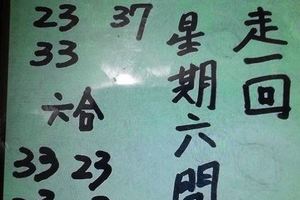 走一回
星期六開
23 37
33
六合
33 23